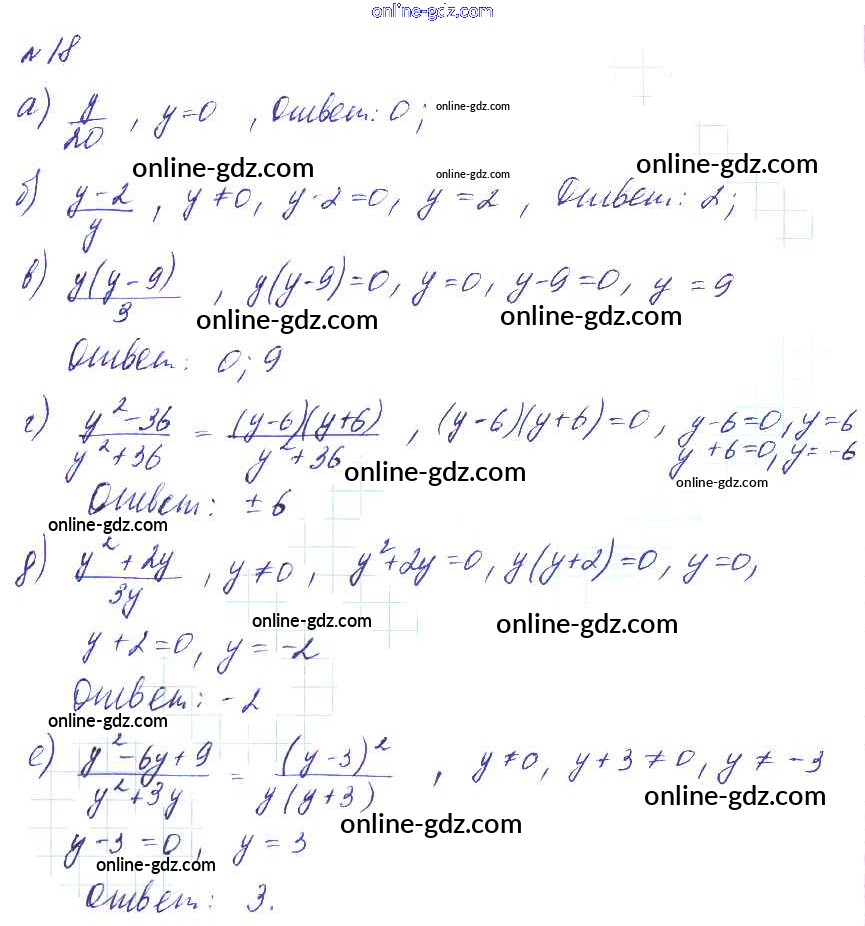 online-gdz.com
№ 18
а) y/20 , y=0 , Ответ: 0; online-gdz.com
online-gdz.com online-gdz.com online-gdz.com
б) (y-2)/y , y≠0, y-2=0, y=2, Ответ: 2;
в) y(y-9)/3 , y(y-9)=0, y=0, y-9=0, y=9
online-gdz.com online-gdz.com
Ответ: 0; 9
г) (y²-36)/(y²+36) = (y-6)(y+6)/(y²+36) , (y-6)(y+6)=0, y-6=0, y=6
y+6=0, y=-6
online-gdz.com online-gdz.com
Ответ: ±6
online-gdz.com
д) (y²+2y)/3y , y≠0, y²+2y=0, y(y+2)=0, y=0,
online-gdz.com online-gdz.com
y+2=0, y=-2
Ответ: -2
online-gdz.com
е) (y²-6y+9)/(y²+3y) = (y-3)²/y(y+3) , y≠0, y+3≠0, y≠-3
online-gdz.com online-gdz.com
y-3=0, y=3
online-gdz.com
Ответ: 3.